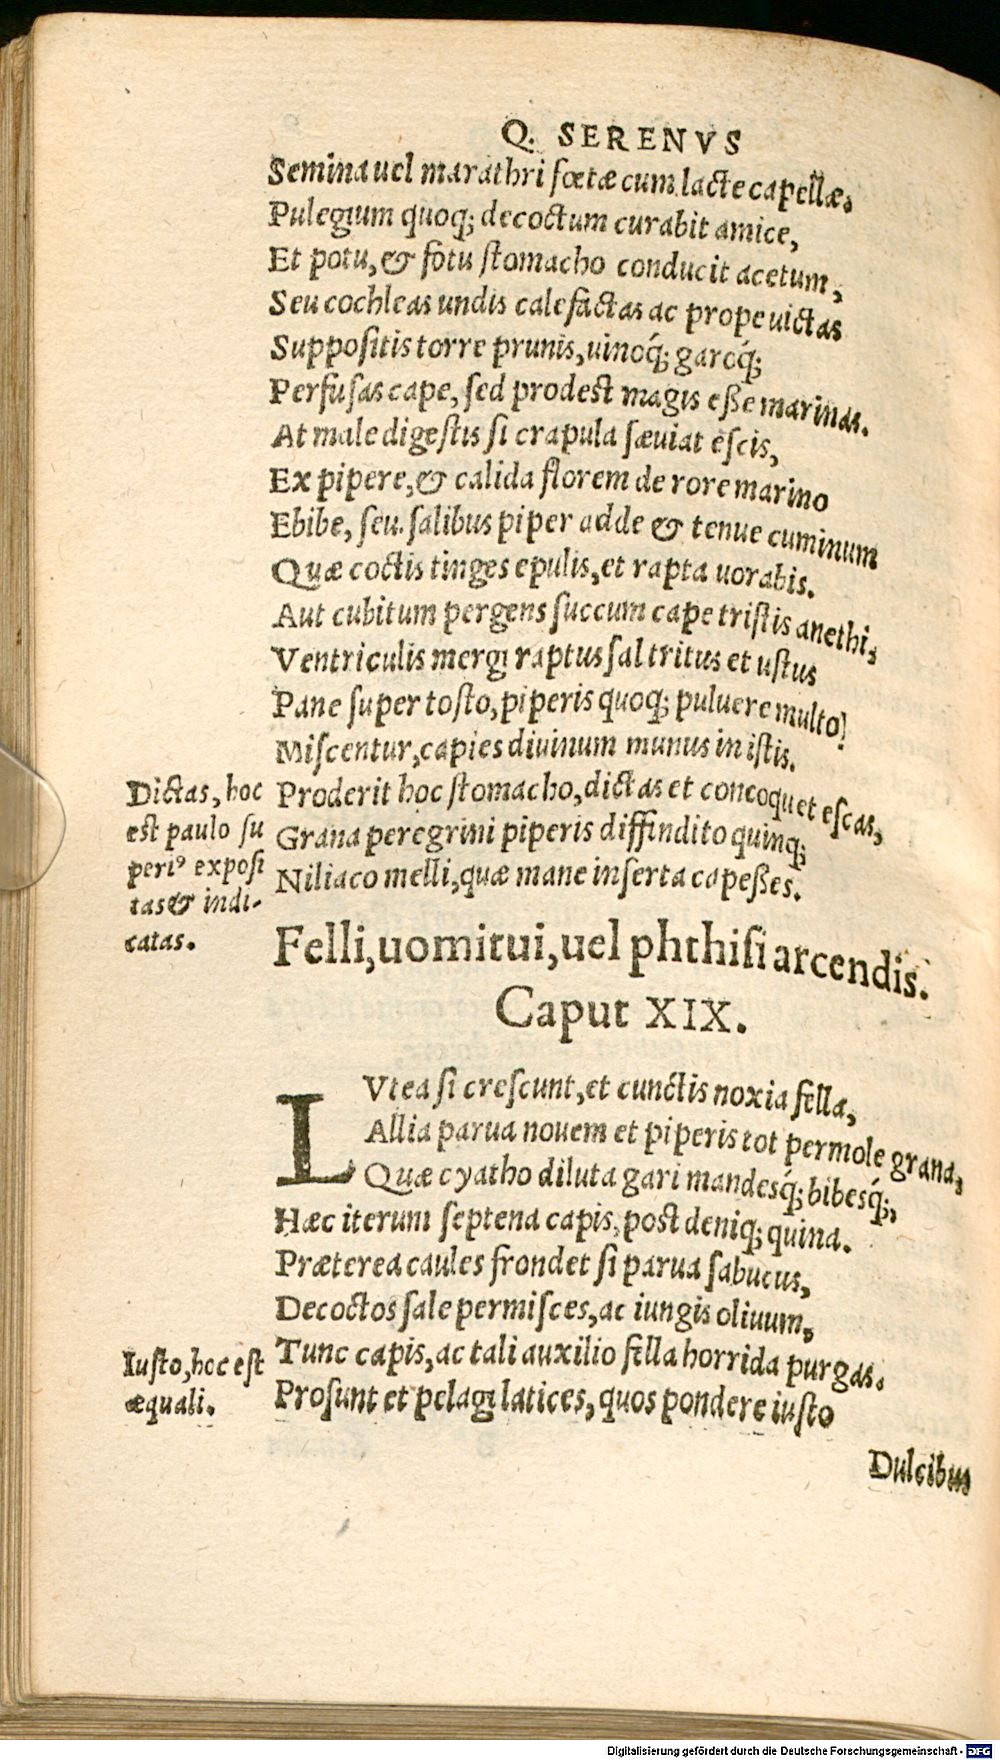 Q. SERENVS
Semina uel marathri fœtæ cum lacte capellæ.
Pulegium quoq; decoctum curabit amice,
Et potu, & fotu stomacho conducit acetum,
Seu cochleas undis calefactas ac prope uictas
Suppositis torre prunis, uinoq́; garoq́;
Perfusas cape, sed prodest magis eße marinas.
At male digestis si crapula sæuiat escis,
Ex pipere, & calida florem de rore marino
Ebibe, seu salibus piper adde & tenue cuminum
Quæ coctis tinges epulis, et rapta uorabis.
Aut cubitum pergens succum cape tristis anethi,
Ventriculis mergi raptus sal tritus et ustus
Pane super tosto, piperis quoq; puluere multo
Miscentur, capies diuinum munus in istis.
Dictas, hoc
est paulo su
periꝰ exposi
tas & indi-
catas.
Proderit hoc stomacho, dictas et concoquet escas,
Grana peregrini piperis diffindito quinq;
Niliaco melli, quæ mane inserta capeßes.
Felli, uomitui, uel phthisi arcendis.
Caput XIX.
LVtea si crescunt, et cunctis noxia fella,
Allia parua nouem et piperis tot permole grana,
Quæ cyatho diluta gari mandesq́; bibesq́;,
Hæc iterum septena capis, post deniq; quina.
Præterea caules frondet si parua sabucus,
Decoctos sale permisces, ac iungis oliuum,
Tunc capis, ac tali auxilio fella horrida purgas.
Iusto, hoc est
æquali.
Prosunt et pelagi latices, quos pondere iusto
Dulcibus
Digitalisierung gefördert durch die Deutsche Forschungsgemeinschaft - DFG